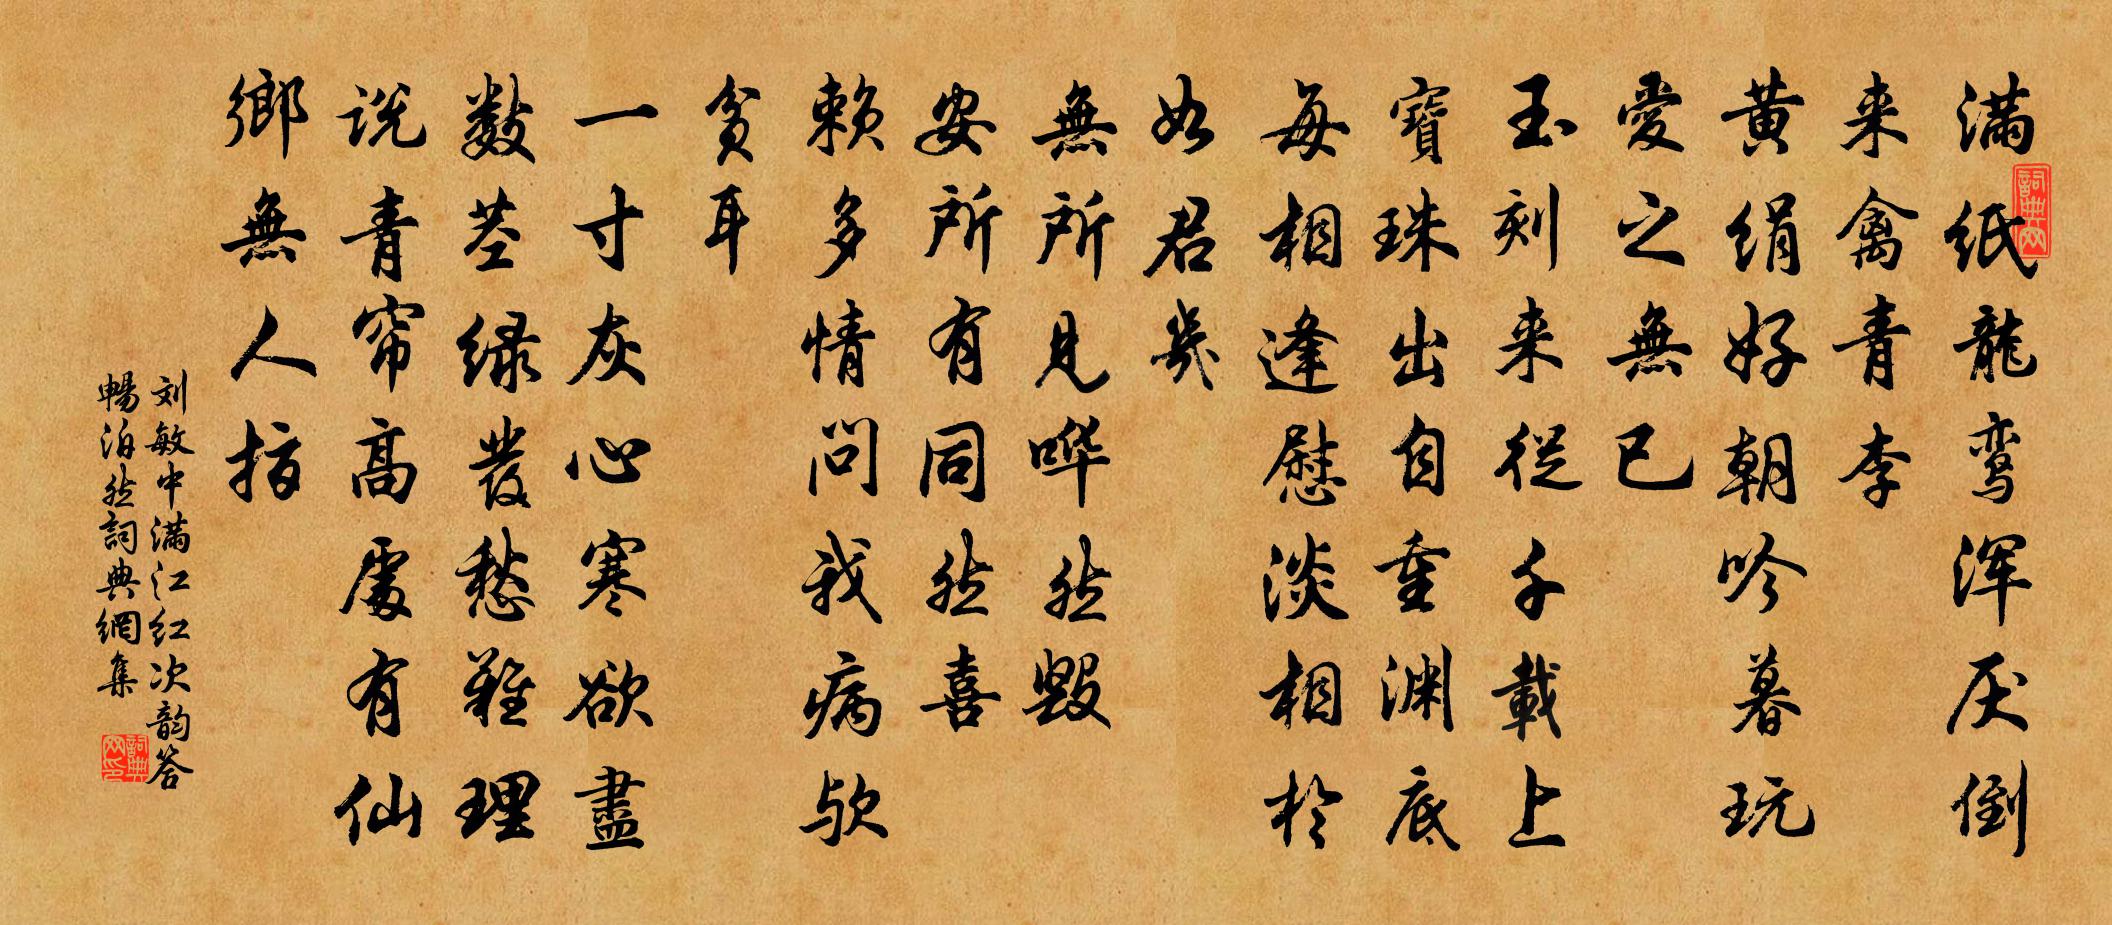 满纸龍鸾浑厌倒
来禽青李
黄绢好朝吟暮玩
愛之無已
玉刻来從千載上
寶珠出自重渊底
每相逢慰淡相於
如君幾
無所見哗然毁
安所有同然喜
赖多情问我病欤
贫耳
一寸灰心寒欲盡
数茎绿发愁難理
说青帘高處有仙
鄉無人指
刘敏中满江红次韵答
暢泊然詞典網集
詞典网
詞典网印